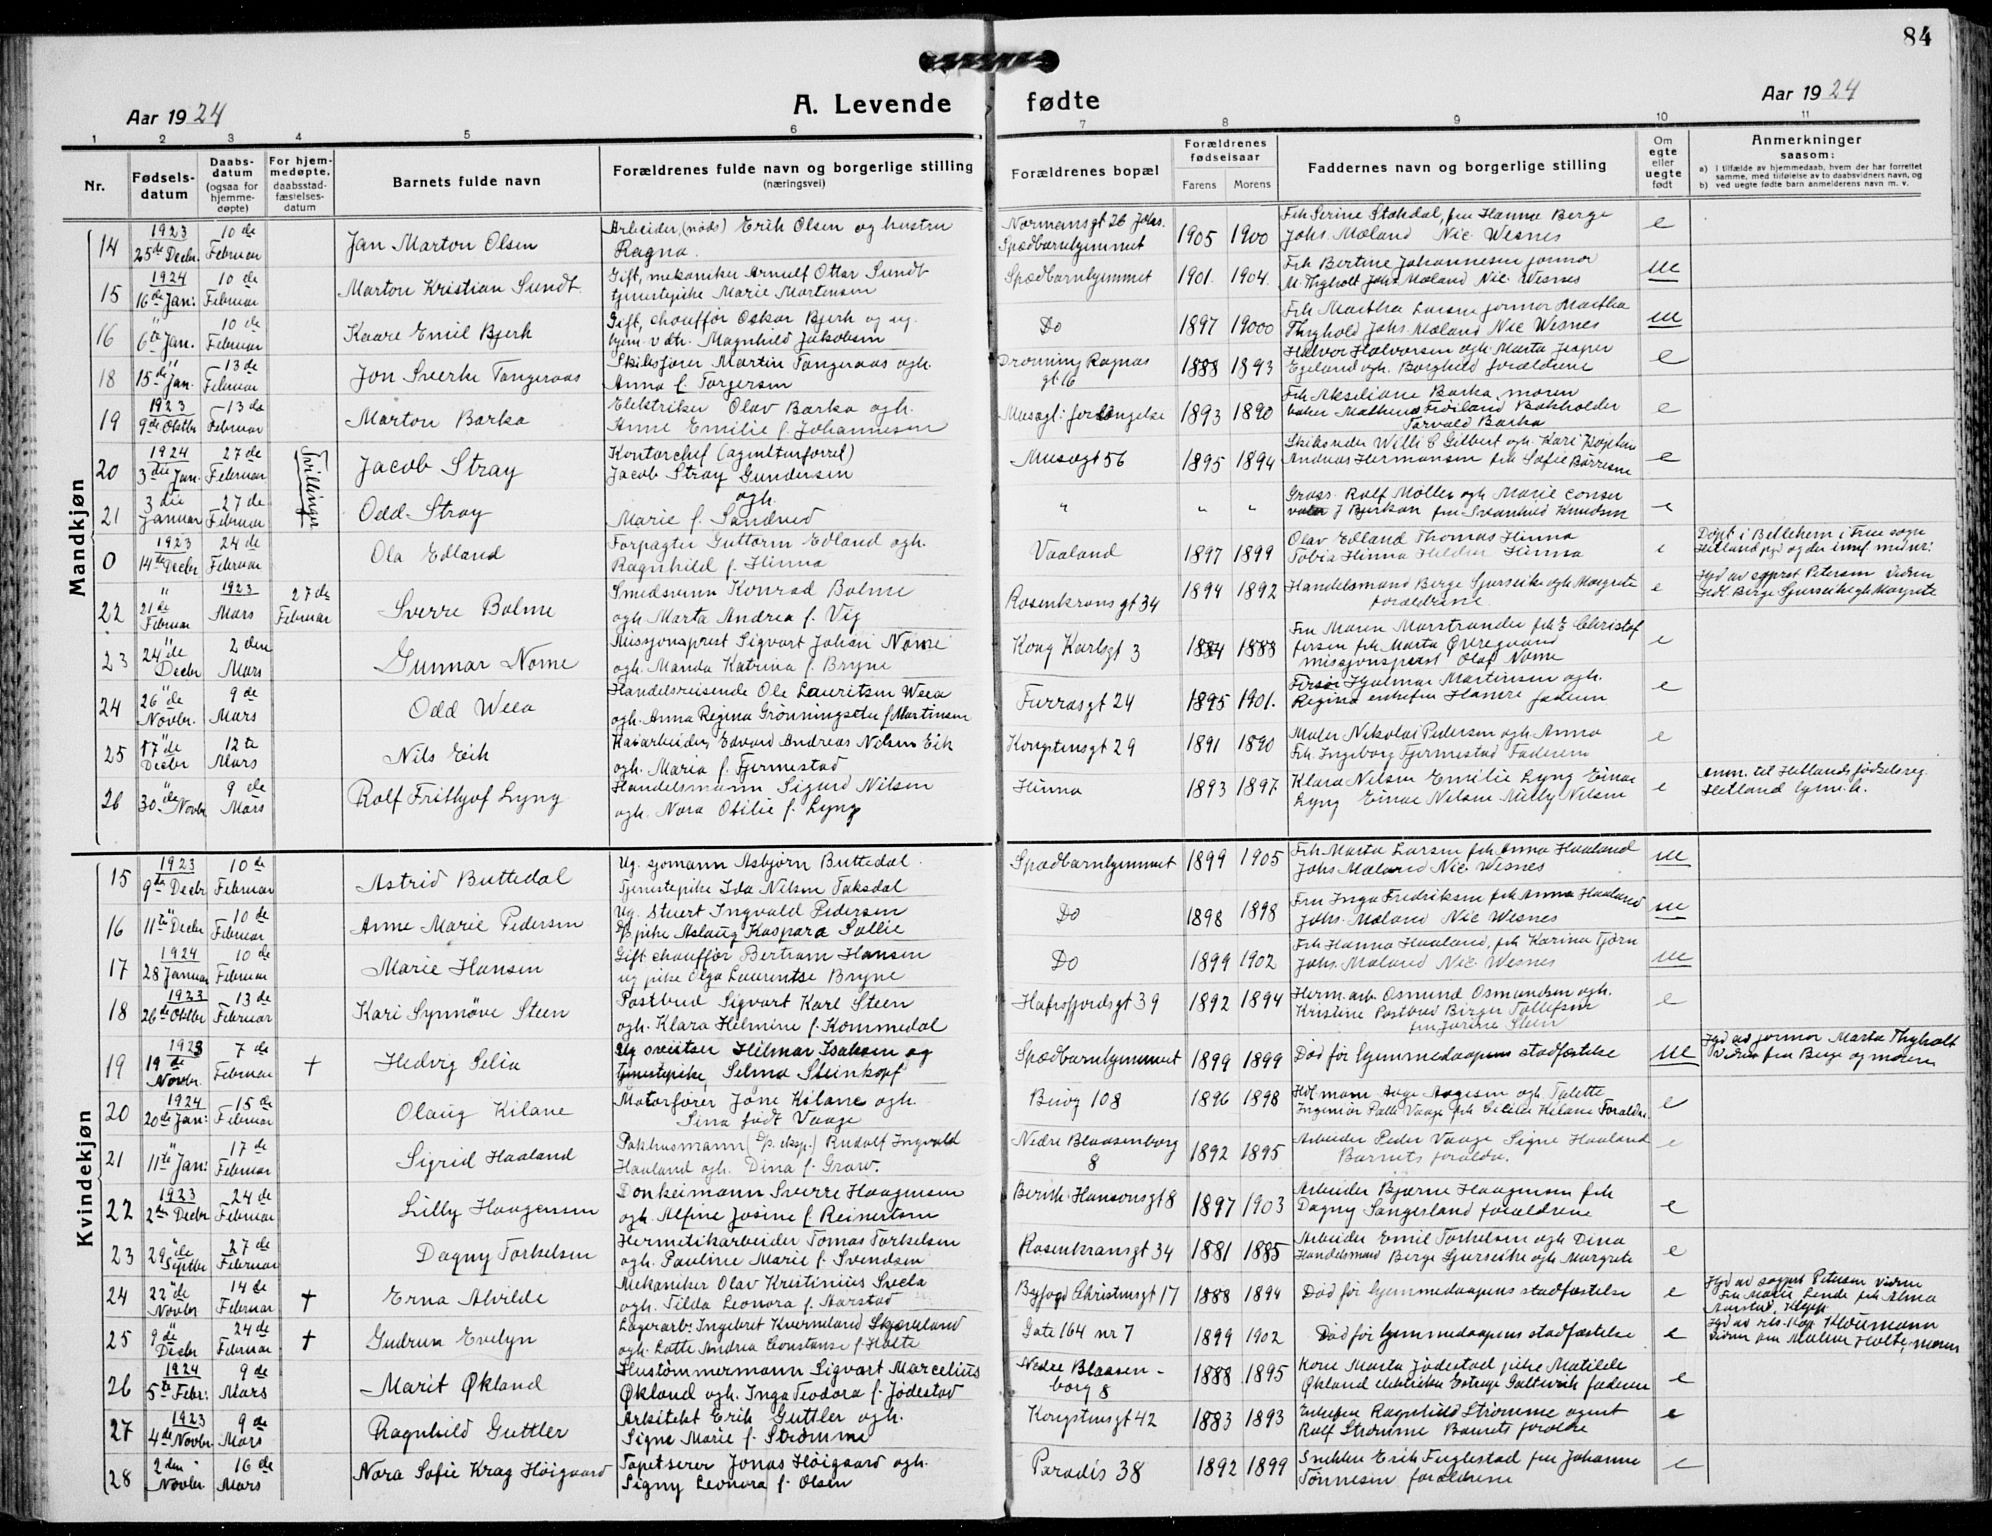 84
Aar 1924
A. Levende fødte
Aar 1924
1 2 3 4 5 6 7 8 9 10 11
Nr.
Fødsels-
datum
Daabs-
datum
(ogsaa for
hjemme-
døpte)
For hjem-
medøpte,
daabsstad-
fæstelses-
datum
Barnets fulde navn
Forældrenes fulde navn og borgerlige stilling
(næringsvei)
Forældrenes bopæl
Forældrenes
fødselsaar
Farens Morens
Faddernes navn og borgerlige stilling
Om
egte
eller
uegte
født
Anmerkninger
saasom:
a) i tilfælde av hjemmedaab, hvem der har forrettet
samme, med tilføielse av to daabsvidners navn, og
b) ved uegte fødte barn anmelderens navn m. v.
Mandkjøn
14 1923 25de Decbr. 10de Februar Jan Marton Olsen Arbeider (nøds) Erik Olsen og hustru
Ragna. Normansgt 26 Johs. Spædbarnhjemmet 1905 1900 Frk Serine Stokdal, fru Hanna Berge
Johs Mæland Nic. Wesnes e
15 1924 16de Jan: 10de Februar Marton Kristian Sundt Gift, mekaniker Arnulf Ottar Sundt
tjenestepike Marie Mortensen Spædbarnhjemmet 1901. 1904. Frk Bertine Johannesen jormor
M. Thyholt Johs Mæland Nic Wesnes ue
16 " 6te Jan. 10de Februar Kaare Emil Bjerk Gift, chauffør Oskar Bjerk og ug.
hjem. v. dtr. Magnhild Jakobsen Do 1897 19000 Frk Martha Larsen jormor Martha
Thyhold Johs. Mæland Nic Wesnes ue
18 " 15de Jan. 13de Februar Jon Sverke Tangeraas Skibsfører Martin Tangeraas ogh.
Anna f. Torgersen Dronning Ragnas
gt 16 1888 1893 Halvor Halvorsen ogh. Marta Jesper
Egeland ogh. Borghild forældrene e
19 1923 9de Oktbr 13de Februar Marton Barka Elektriker Olav Barka ogh.
Anne Emilie f. Johannesen Musegt: forlængelse 1893 1890 Frk Akseliane Barka, moren
baker Matheus Frøiland Bokholder
Torvald Barka e
20 1924 3die Jan. 27de Februar Tvillinger Jacob Stray Kontorchef (agenturforret)
Jacob Stray Gundersen Musegt 56 1895 1894 Skibsreder Willi S Gilbert ogh. Kari
Andreas Hermansen frk Sofie Børresen e
21 3die Januar 27de Februar Odd Stray ogh.
Marie f. Sandved " " " Gross. Rolf Møller ogh Marie
J Bjerkan fru Svanhild Knudsen e
0 1923 14de Decbr 24de Februar Ola Edland Forpagter Guttorm Edland ogh.
Ragnhild f. Hinna Vaaland 1897 1899 Olav Edland Thomas Hinna
Tobia Hinna Helder Hinna e Døpt i Betlehem i Frue sogn
22 " 21de Februar 1923 Mars 27de Februar Sverre Bolme Smedsvenn Konrad Bolme
ogh. Marta Andrea f. Vig Rosenkransgt 34 1894 1892 Handelsmand Berge Gjerseike ogh Margrete
forældrene. e Hjd av sogprst Petersen Vidner
Hdl. Berge Gjerseike ogh Margrete
23 " 24de Decbr 2den Mars Gunnar Nome Missjonsprest Sigvart Johan Nome
ogh. Manda Katrina f. Bryne Kong Karlsgt 3 1884 1888 Fru Maren Marstrander frk E Christof
fersen frk Marta Øvregaard
missjonsprest Olaf Nome e
24 26"de Novbr. 9de Mars Odd Weea Handelsreisende Ole Lauritsen Weea
ogh. Anna Regina Grønningsetter f Martinsen Furrasgt 24 1895 1901. Hjalmar Martinsen ogh.
Regina enkefru Hanere faderen e
25 17"de Decbr 12te Mars Nils Eik Kaiarbeider Edvard Andreas Nilsen Eik
ogh. Maria f. Fjermestad Kongstensgt 29 1891 1890 Maler Nikolai Pedersen ogh Anna
Frk. Ingeborg Fjermestad Faderen e
26 " 30de Novbr 9de Mars Rolf Frithjof Lyng Handelsmann Sigurd Nilsen
ogh. Nora Otilie f. Lyng Hinna 1893 1897. Klara Nilsen Emilie Lyng Einar
Lyng Einar Nilsen Milly Nilsen e Anm. til Hetlands fødselsreg.
Hetland
Kvindekjøn
15 1923 9de Decbr 10de Februar Astrid Buttedal Ug. sjømann Asbjørn Buttedal.
Tjenestepike Ida Nilsen Taksdal Spædbarnhjemmet 1899 1905 Frk Marta Larsen frk Anna Haaland
Johs Mæland Nic. Wesnes ue
16 11te Decbr 10de Februar Anne Marie Pedersen Ug. Stuert Ingvald Pedersen
pike Aslaug Kaspara Sollie Do 1898 1898 Fru Inga Fredriksen frk Anna Haaland
Johs. Mæland Nic Wesnes ue
17 1924 28 Januar 10de Februar Marie Hansen Gift chauffør Bertram Hansen
ug pike Olga Laurentse Bryne Do 1899 1902 Frk Hanna Haaland, frk Karina Tjørn
Johs. Mæland Nic. Wesnes ue
18 1923 26de Oktbr 13de Februar Kari Synnøve Steen Postbud Sigvart Karl Steen
ogh. Klara Helmine f. Kommedal Hafrsfjordsgt 39 1892 1894 Herm. arb. Osmund Osmundsen ogh.
Kristine Postbud Birger Tollefsen
fru Jorine Steen e
19 1923 19de Novbr. 7de Februar † Hedvig Selia Ug sveitser Hilmar Isaksen og
tjenestepike, Selma Steinkopf Spædbarnhjemmet 1899 1899 Død før hjemmedaapens stadfæstelse ue Hjd av jormor Marta Thyholt
Vidner fru Berge og moren
20 1924 20de Jan: 15de Februar Olaug Kilane Motorfører Jone Kilane ogh.
Sina født Vaage Buøy 108 1896 1898 Hdl mann Aage Aagesen ogh Talette
Ingeniør Palle Vaage frk Cecilie Kilane Forældre e
21 " 11te Jan: 17de Februar Sigrid Haaland Pakhusmann (D/p. eksp.) Rudolf Ingvald
Haaland ogh. Dina f. Graw. Nedre Blaasenborg
8 1892 1895 Arbeider Peder Vaage Signe Haaland
Barnets forældr. e
22 1923 2den Decbr 24de Februar Lilly Haagensen Donkeimann Sverre Haagensen
ogh. Alfine Josine f. Reinertsen Bernh. Hansensgt 8 1897 1903 Arbeider Bjarne Haagensen frk
Dagny Sangesland forældrene e
23 29"de Septbr 27de Februar Dagny Torkelsen Hermetikarbeider Tomas Torkelsen
ogh. Pauline Marie f. Svendsen Rosenkransgt 34 1881 1885 Arbeider Emil Torkelsen ogh Dina
Handelsmand Berge Gjerseike ogh Margrete e
24 22"de Novbr 14de Februar † Erna Alvilde Mekaniker Olav Kristinius Svela
ogh. Tilda Leonora f. Aarstad Byfogd Christensgt 17 1888 1894 Død før hjemmedaapens stadfæstelse e Hjd av sogprst Petersen Vidner
Fru Marie Lende frk Alma
Aarstad, Klepp
25 9"de Decbr 24de Februar † Gudrun Evelyn Lagerarb. Ingebret Kverneland Skjæveland
ogh. Lotte Andrea Constanse f. Holte Gate 164 nr 7 1899 1902 Død før hjemmedaapens stadfæstelse e Hjd av res. Kap. Kleiemann
Vidner fru Malene Holte, moren
26 1924 5te Febr: 9de Mars Marit Økland Hustømmermann Sigvart Marcelius
Økland ogh. Inga Teodora f. Jødestad Nedre Blaasen-
borg 8 1888 1895 Kone Marta Jødestad pike Matilde
Økland elektriker faderen e
27 1923 4de Novbr 9de Mars Ragnhild Guttler Arkitekt Erik Guttler ogh.
Signe Marie f. Strømme Kongstensgt 42 1883 1893 Enkefru Ragnhild Strømme agent
Rolf Strømme Barnets foreldre e
28 2den Novbr 16de Mars Nora Sofie Krag Høigaard Tapetserer Jonas Høigaard ogh.
Signy Leonora f. Olsen Paradis 38 1892 1899 Snekker Erik Fuglestad fru Johanne
Tønnesen forældrene e